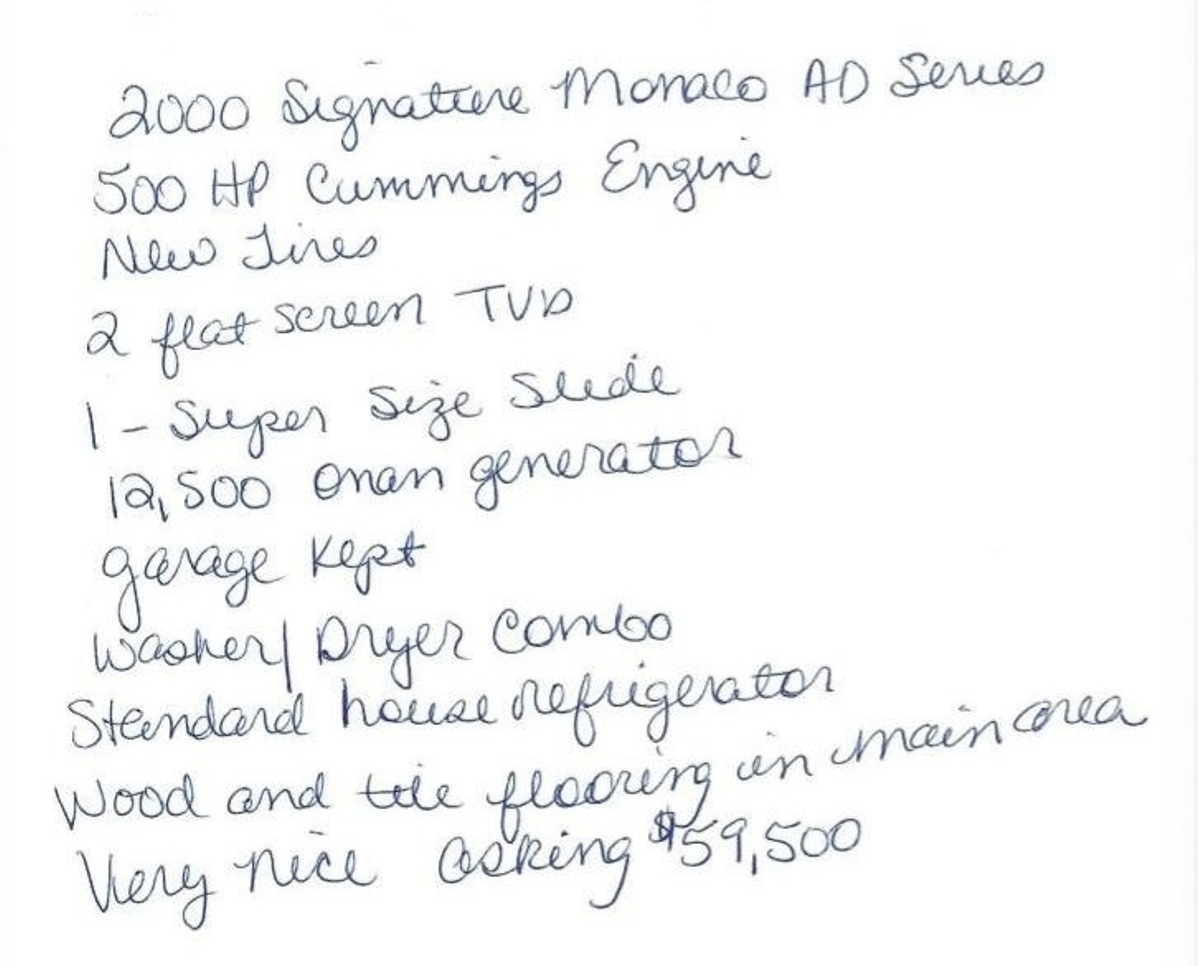 2000 Signature Monaco AD Series
500 HP Cummings Engine
New Tires
2 flat screen TVs
1 - Super Size Slide
12,500 onan generator
garage kept
Washer/Dryer Combo
Standard house refrigerator
Wood and tile flooring in main area
Very nice asking $59,500